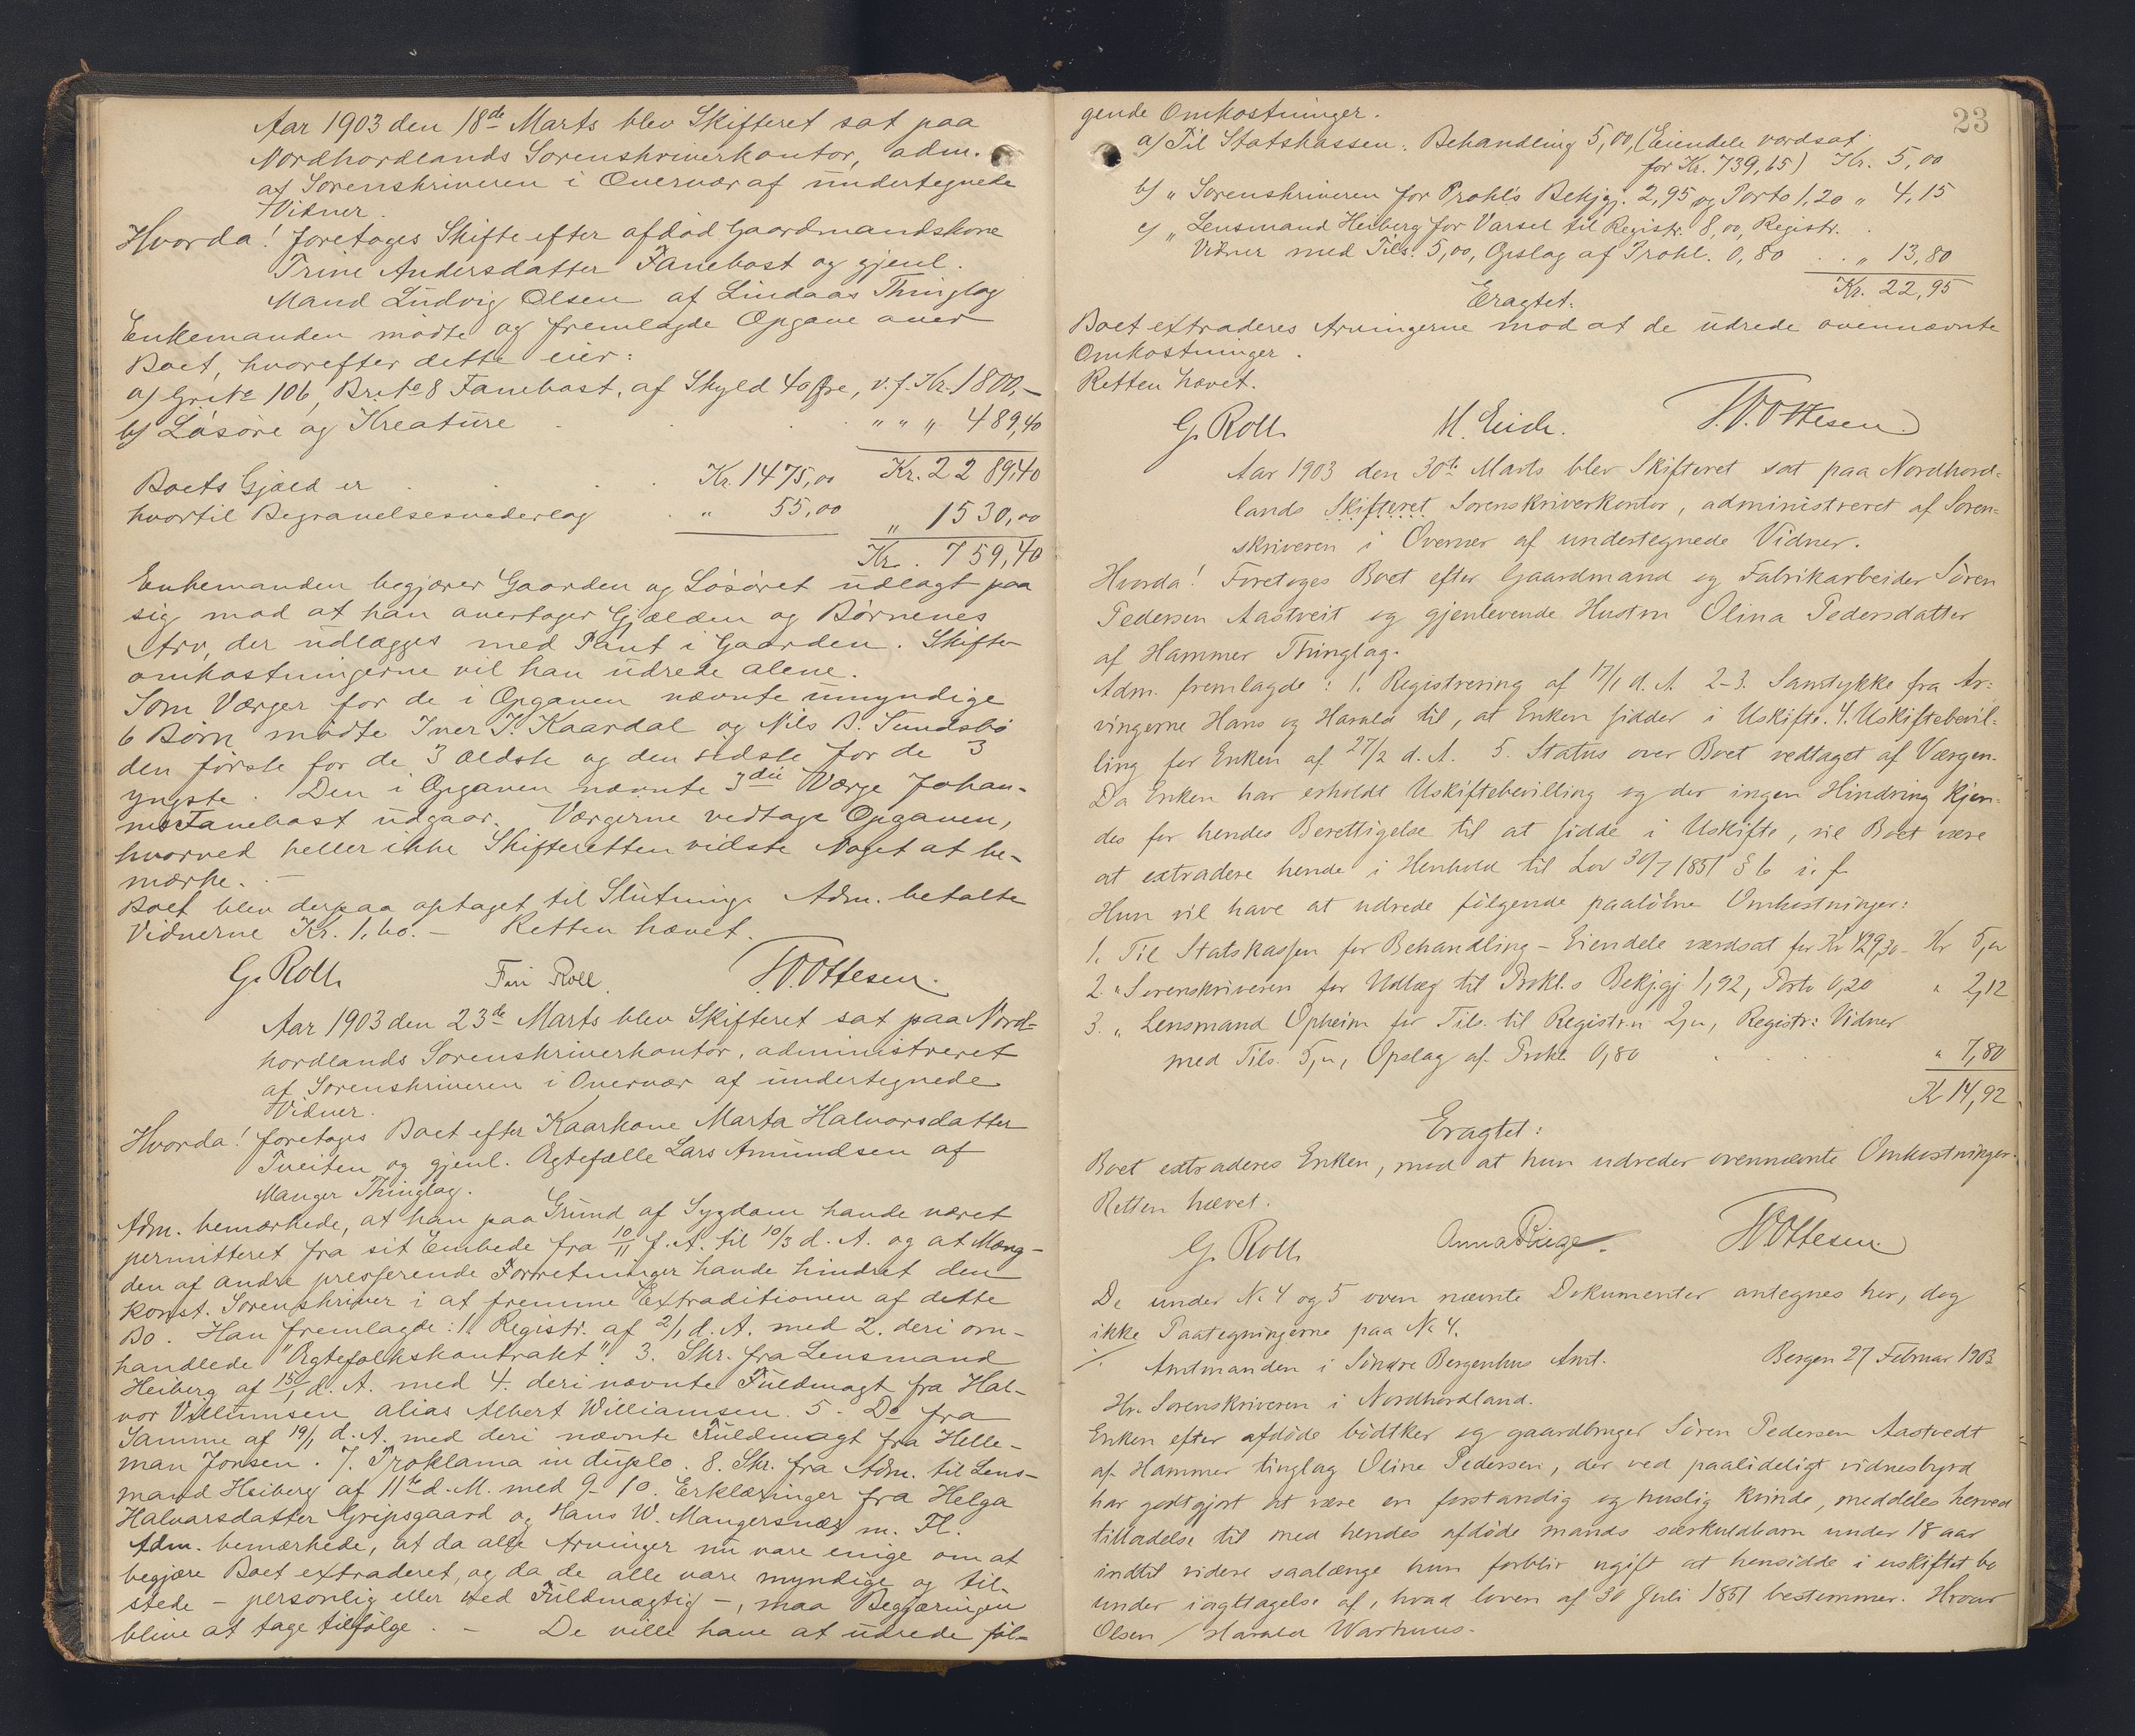 Aar 1903 den 18de Marts blev Skifteret sat paa
Nordhordlands Sorenskriverkontor, adm.
af Sorenskriveren i Overvær af undertegnede
Vidner.
Hvorda! foretoges Skifte efter afdød Gaardmandskone
Trine Andersdatter Fanebost og gjenl.
Mand Ludvig Olsen af Lindaas Thinglag
Enkemanden mødte og fremlagde Opgave over
Boet, hvorefter dette eier:
a) Grno 106, Brno 8 Fanebost, af Skyld 40 Øre, v. f. Kr. 1800,-
b) Løsøre og Kreature . . . " " " 489,40
Kr. 2289,40
Boets Gjæld er . . . Kr. 1475,00
hvortil Begravelsesvederlag . " 55,00 " 1530,00
Kr. 759,40
Enkemanden begjærer Gaarden og Løsøret udlagt paa
sig mod at han overtager Gjælden og Børnenes
Arv, der udlægges med Pant i Gaarden. Skifte-
omkostningerne vil han udrede alene.
Som Værger for de i Opgaven nævnte umyndige
6 Børn mødte Iver J. Kaardal og Nils B. Sundsbø
den første for de 3 ældste og den sidste for de 3
yngste. Den i Opgaven nævnte 3die Værge Johan-
nes Fanebost udgaar. Værgerne vedtage Opgaven,
hvorved heller ikke Skifteretten vidste Noget at be-
mærke. —
Boet blev derpaa optaget til Slutning. Adm. betalte
Vidnerne Kr. 1,60. — Retten hævet.
G. Roll Roll W. Ottesen.
Aar 1903 den 23de Marts blev Skifteret sat paa Nord-
hordlands Sorenskriverkontor, administreret
af Sorenskriveren i Overvær af undertegnede
Vidner.
Hvorda! foretoges Boet efter Kaarkone Marta Halvorsdatter
Tveiten og gjenl. Ægtefælle Lars Amundsen af
Manger Thinglag.
Adm. bemærkede, at han paa Grund af Sygdom havde været
permitteret fra sit Embede fra 10/11 f. A. til 10/3 d. A. og at Mæng-
den af andre presserende Forretninger havde hindret den
konst. Sorenskriver i at fremme Extraditionen af dette
Bo. Han fremlagde: 1. Registr. af 2/1 d. A. med 2. deri om-
handlede "Ægtefolkskontrakt". 3. Skr. fra Lensmand
Heiberg af 15/1 d. A. med 4. deri nævnte Fuldmagt fra Hal-
vor Villumsen alias Albert Williamsen. 5. Do fra
Samme af 19/1 d. A. med deri nævnte Fuldmagt fra Helle-
man Jonsen. 7. Proklama in duplo. 8. Skr. fra Adm. til Lens-
mand Heiberg af 11te d. M. med 9-10. Erklæringer fra Helga
Halvorsdatter Gripsgaard og Hans W. Mangersnæs m. Fl.
Adm. bemærkede, at da alle Arvinger nu vare enige om at
begjære Boet extraderet, og da de alle vare myndige og til-
stede - personlig eller ved Fuldmægtig -, maa Begjæringen
blive at tage tilfølge. — De ville have at udrede føl-
23
gende Omkostninger.
a) Til Statskassen: Behandling 5,00, (Eiendele værdsat
for Kr. 739,65) Kr. 5,00
b) " Sorenskriveren for Prokls Bekjgj. 2,95 og Porto 1,20 " 4,15
c) " Lensmand Heiberg for Varsel til Registr. 8,00, Registr.
Vidner med Tils. 5,00, Opslag af Prokl. 0,80 . . " 13,80
Kr. 22,95
Eragtet:
Boet extraderes Arvingerne mod at de udrede ovennævnte
Omkostninger.
Retten hævet.
G. Roll M. Eide. W. Ottesen.
Aar 1903 den 30te Marts blev Skifteret sat paa Nordhord-
lands Skifteret Sorenskriverkontor, administreret af Soren-
skriveren i Overvær af undertegnede Vidner.
Hvorda! Foretoges Boet efter Gaardmand og Fabrikarbeider Sören
Pedersen Aastveit og gjenlevende Hustru Olina Pedersdatter
af Hammer Thinglag.
Adm. fremlagde: 1. Registrering af 17/1 d. A. 2-3. Samtykke fra Ar-
vingerne Hans og Harald til, at Enken sidder i Uskifte. 4. Uskiftebevil-
ling for Enken af 27/2 d. A. 5. Status over Boet vedtaget af Værgen.
Da Enken har erholdt Uskiftebevilling og der ingen Hindring kjen-
des for hendes Berettigelse til at sidde i Uskifte, vil Boet være
at extradere hende i Henhold til Lov 30/7 1851 § 6 i. f.
Hun vil have at udrede følgende paaløbne Omkostninger:
1. Til Statskassen for Behandling - Eiendele værdsat for Kr 429,30 - Kr 5,00
2. " Sorenskriveren for Udlæg til Prokl.s Bekjgj 1,92, Porto 0,20 " 2,12
3. " Lensmand Opheim for Tils. til Registr.n 2,00, Registr: Vidner
med Tils. 5,00, Opslag af Prokl. 0,80 . . . " 7,80
Kr 14,92
Eragtet:
Boet extraderes Enken, mod at hun udreder ovennævnte Omkostninger.
Retten hævet.
G. Roll Anna W Ottesen.
De under No 4 og 5 oven nævnte Dokumenter antegnes her, dog
ikke Paategningerne paa No 4.
./. Amtmanden i Søndre Bergenhus Amt. Bergen 27 Februar 1903
Hr. Sorenskriveren i Nordhordland.
Enken efter afdøde bødtker og gaardbruger Sören Pedersen Aastvedt
af Hammer tinglag Oline Pedersen, der ved paalideligt vidnesbyrd
har godtgjort at være en forstandig og huslig kvinde, meddeles herved
tilladelse til med hendes afdøde mands særkuldbarn under 18 aar
indtil videre saalænge hun forblir ugift at hensidde i uskiftet bo
under iagttagelse af, hvad loven af 30 Juli 1851 bestemmer. Hroar
Olsen / Harald Warhuus.